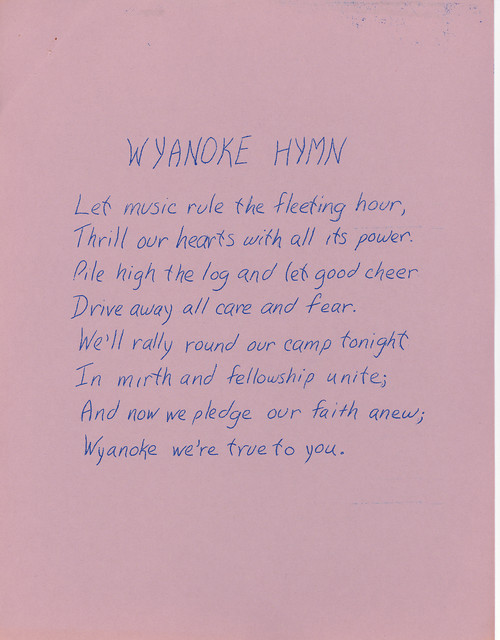 WYANOKE HYMN
Let music rule the fleeting hour,
Thrill our hearts with all its power.
Pile high the log and let good cheer
Drive away all care and fear.
We'll rally round our camp tonight
In mirth and fellowship unite;
And now we pledge our faith anew;
Wyanoke we're true to you.